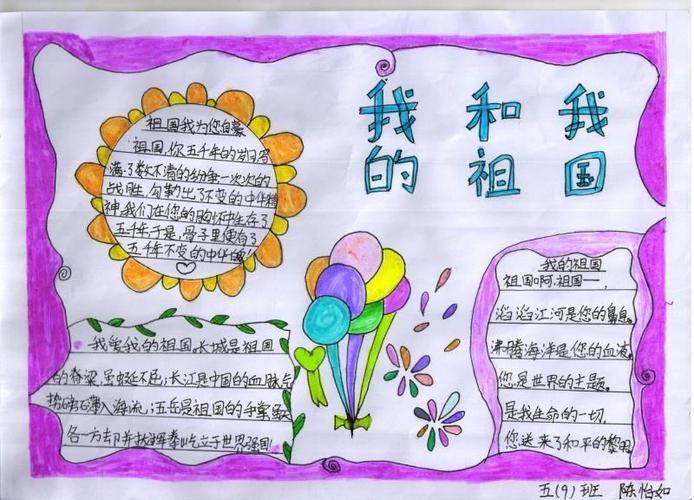 我和我
的祖国
祖国我为您自豪
祖国,你五千年的岁月写
满了数不清的纷争一次次的
战胜,勾勒出了不变的中华精
神,我们在您的胸怀生存了
五千年于是,骨子里便有了
五千年不变的中华魂!
我爱我的祖国。长城是祖国
的脊梁,蜿蜒不色;长江是中国的血脉,
海流,五岳是祖国的手掌
各一方却并 屹立于世界强国!
我的祖国
祖国啊,祖国——,
滔滔江河是您的鼻息。
沸腾海洋是您的血液,
您是世界的主题。
是我生命的一切,
您送来了和平的黎明
五(9)班 陈怡如